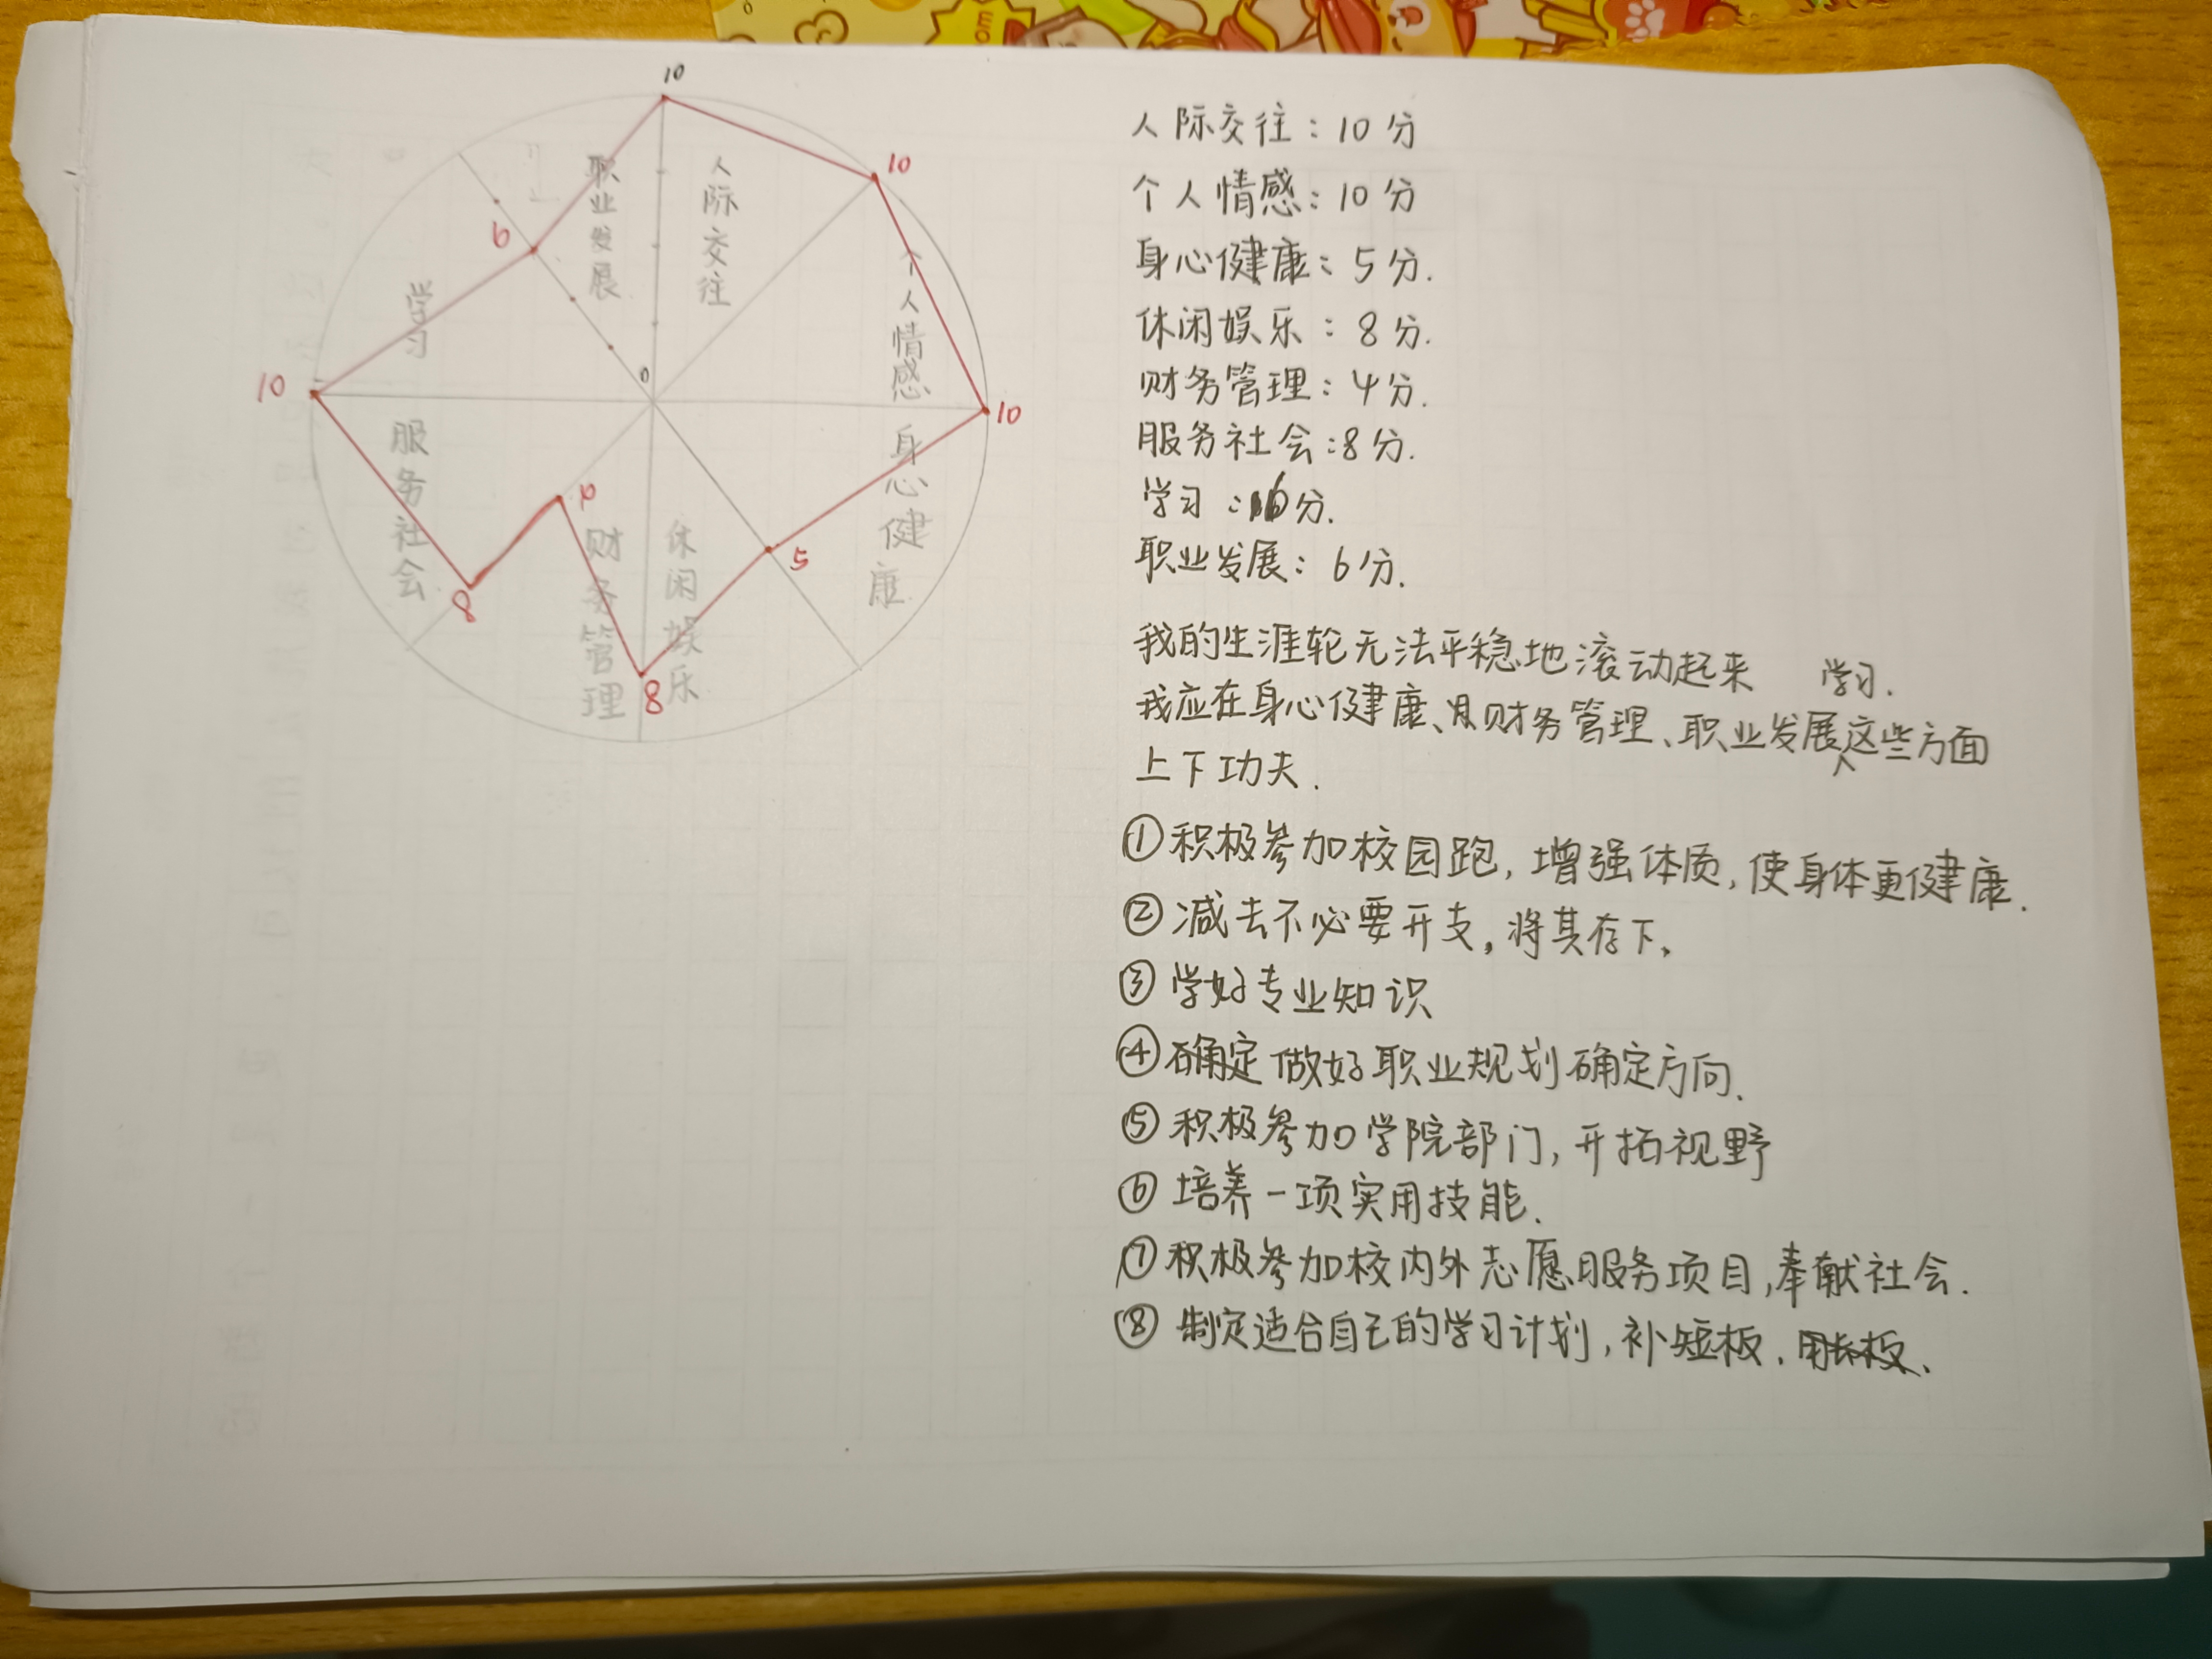 10
10
10
5
8
4
8
10
6
0
职业发展
人际交往
个人情感
身心健康
休闲娱乐
财务管理
服务社会
学习
人际交往：10分
个人情感：10分
身心健康：5分.
休闲娱乐：8分.
财务管理：4分.
服务社会：8分.
学习：6分.
职业发展：6分.
我的生涯轮无法平稳地滚动起来
我应在身心健康、财务管理、职业发展、学习.这些方面
上下功夫.
①积极参加校园跑，增强体质，使身体更健康.
②减去不必要开支，将其存下。
③学好专业知识
④确定做好职业规划确定方向.
⑤积极参加学院部门，开拓视野
⑥培养一项实用技能.
⑦积极参加校内外志愿服务项目，奉献社会.
⑧制定适合自己的学习计划，补短板.